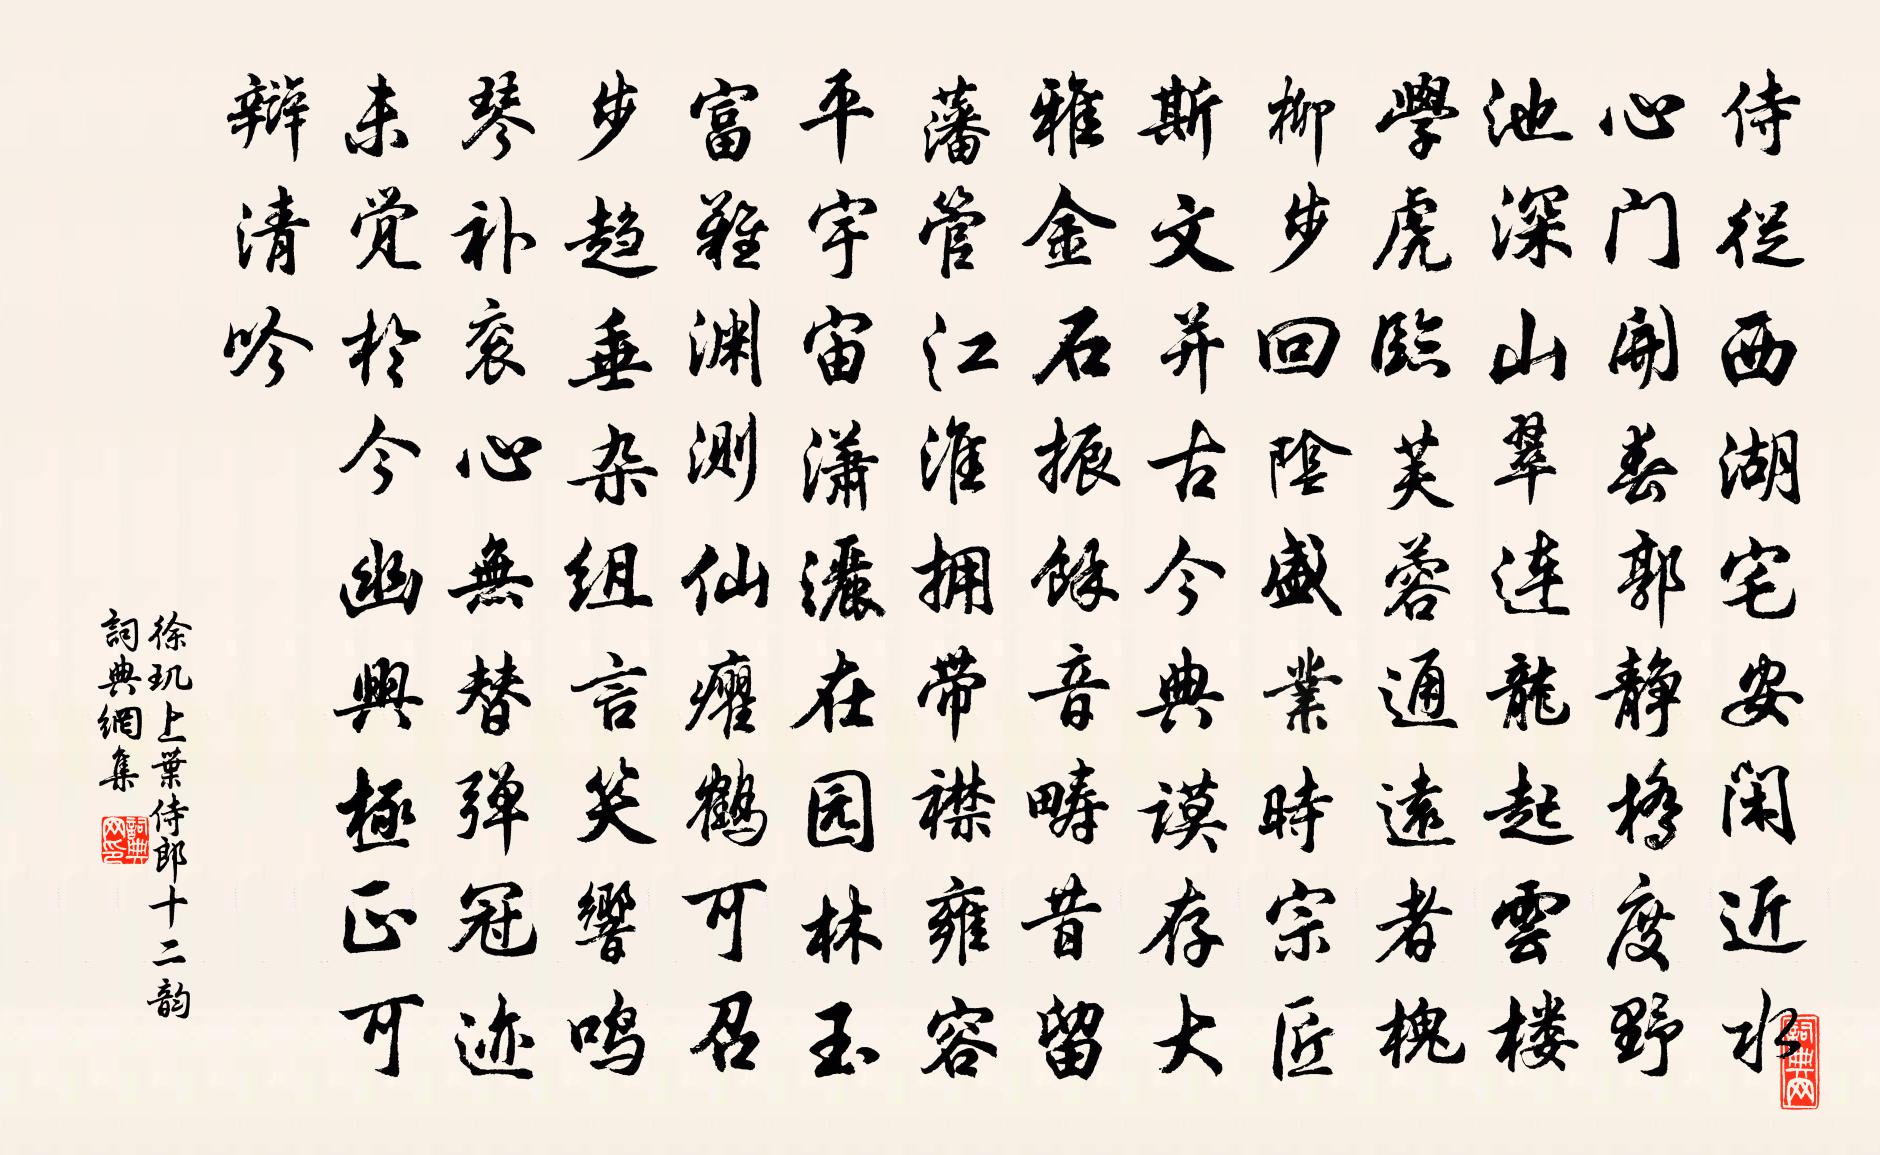 侍從西湖宅安闲近水
心门開春郭静橋度野
池深山翠连龍起雲楼
學虎臨芙蓉通遠者槐
柳步回陰盛業時宗匠
斯文并古今典谟存大
雅金石振餘音疇昔留
藩管江淮拥带襟雍容
平宇宙瀟灑在园林玉
富難渊测仙癯鶴可召
步趋垂杂组言笑響鸣
琴补衮心無替弹冠迹
未觉於今幽興極正可
辩清吟
徐玑上葉侍郎十二韵
詞典網集
詞典网
詞典网印